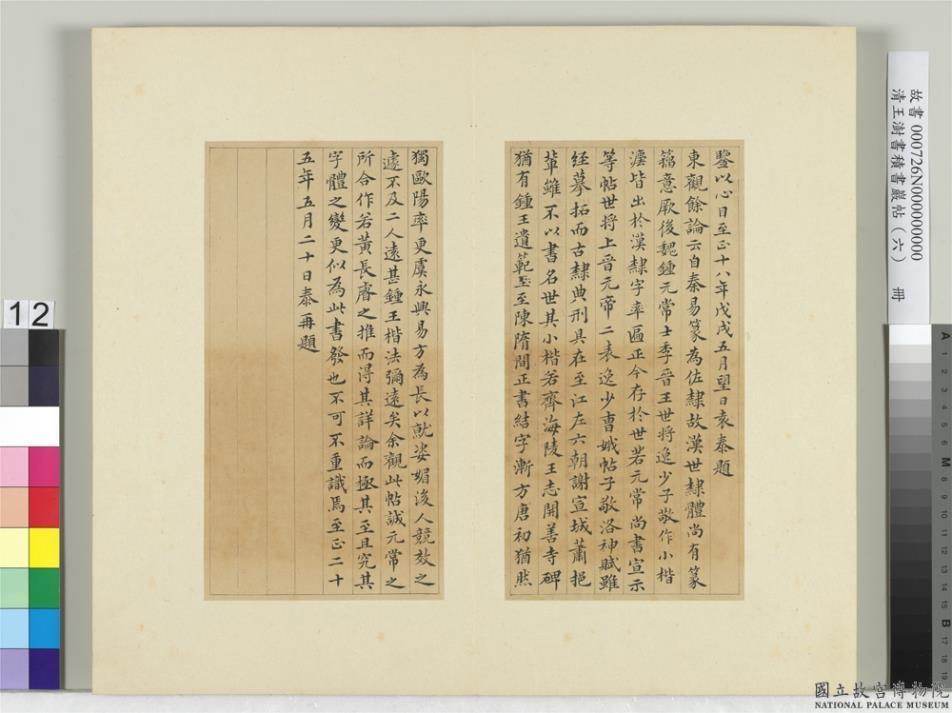 鑒以心日至正十八年戊戌五月望日袁泰題
東觀餘論云自秦易篆為佐隸故漢世隸體尚有篆
籀意厥後魏鍾元常士季晉王世將逸少子敬作小楷
法皆出於漢隸字率匾正今存於世若元常尚書宣示
等帖世將上晉元帝二表逸少曹娥帖子敬洛神賦雖
經摹拓而古隸典刑具在至江左六朝謝宣城蕭挹
輩雖不以書名世其小楷若齊海陵王志開善寺碑
猶有鍾王遺範至陳隋間正書結字漸方唐初猶然
獨歐陽率更虞永興易方為長以就姿媚後人競效之
遽不及二人遠甚鍾王楷法彌遠矣余觀此帖誠元常之
所合作若黃長睿之推而得其詳論而極其至且究其
字體之變更似為此書發也不可不重識焉至正二十
五年五月二十日泰再題
故書 000726N000000000
清王澍書積書巖帖（六） 冊
12
國立故宮博物院
NATIONAL PALACE MUSEUM